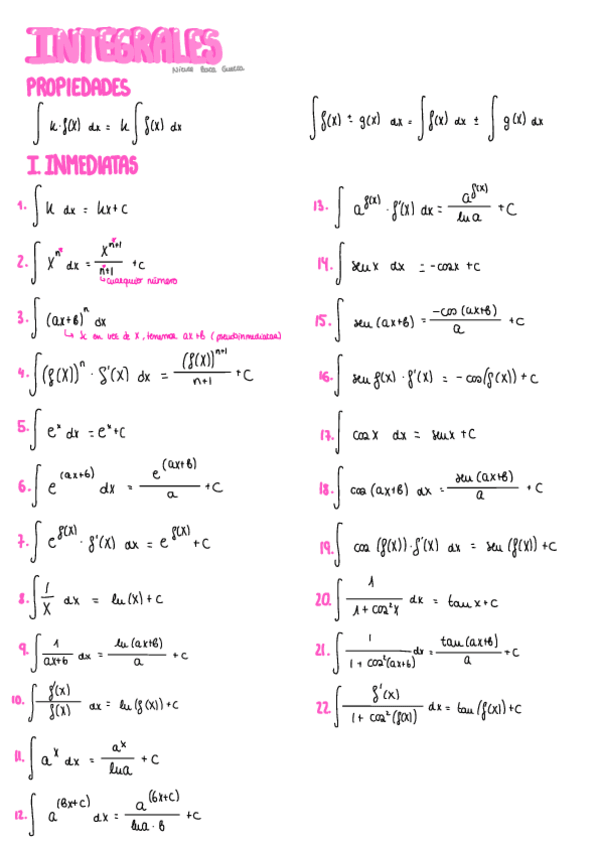 INTEGRALES
PROPIEDADES
∫ k·f(x) dx = k ∫ f(x) dx
∫ f(x) ± g(x) dx = ∫ f(x) dx ± ∫ g(x) dx
I. INMEDIATAS
1. ∫ k dx = kx+C
2. ∫ x^n dx = x^(n+1)/(n+1) +C
↳ cualquier número
3. ∫ (ax+b)^n dx
↳ Si en vez de x, tenemos ax+b (pseudoinmediatas)
4. ∫ (f(x))^n · f'(x) dx = (f(x))^(n+1)/(n+1) +C
5. ∫ e^x dx = e^x+C
6. ∫ e^(ax+b) dx = e^(ax+b)/a +C
7. ∫ e^f(x) · f'(x) dx = e^f(x) +C
8. ∫ 1/x dx = ln(x)+C
9. ∫ 1/(ax+b) dx = ln(ax+b)/a +C
10. ∫ f'(x)/f(x) dx = ln(f(x))+C
11. ∫ a^x dx = a^x/lna +C
12. ∫ a^(bx+c) dx = a^(bx+c)/(lna·b) +C
13. ∫ a^f(x) · f'(x) dx = a^f(x)/lna +C
14. ∫ senx dx = -cosx +C
15. ∫ sen(ax+b) = -cos(ax+b)/a +C
16. ∫ sen f(x)·f'(x) = -cos(f(x))+C
17. ∫ cosx dx = senx +C
18. ∫ cos(ax+b) dx = sen(ax+b)/a +C
19. ∫ cos(f(x))·f'(x) dx = sen(f(x))+C
20. ∫ 1/(1+cos²x) dx = tanx+C
21. ∫ 1/(1+cos²(ax+b)) dx = tan(ax+b)/a +C
22. ∫ f'(x)/(1+cos²(f(x))) dx = tan(f(x))+C